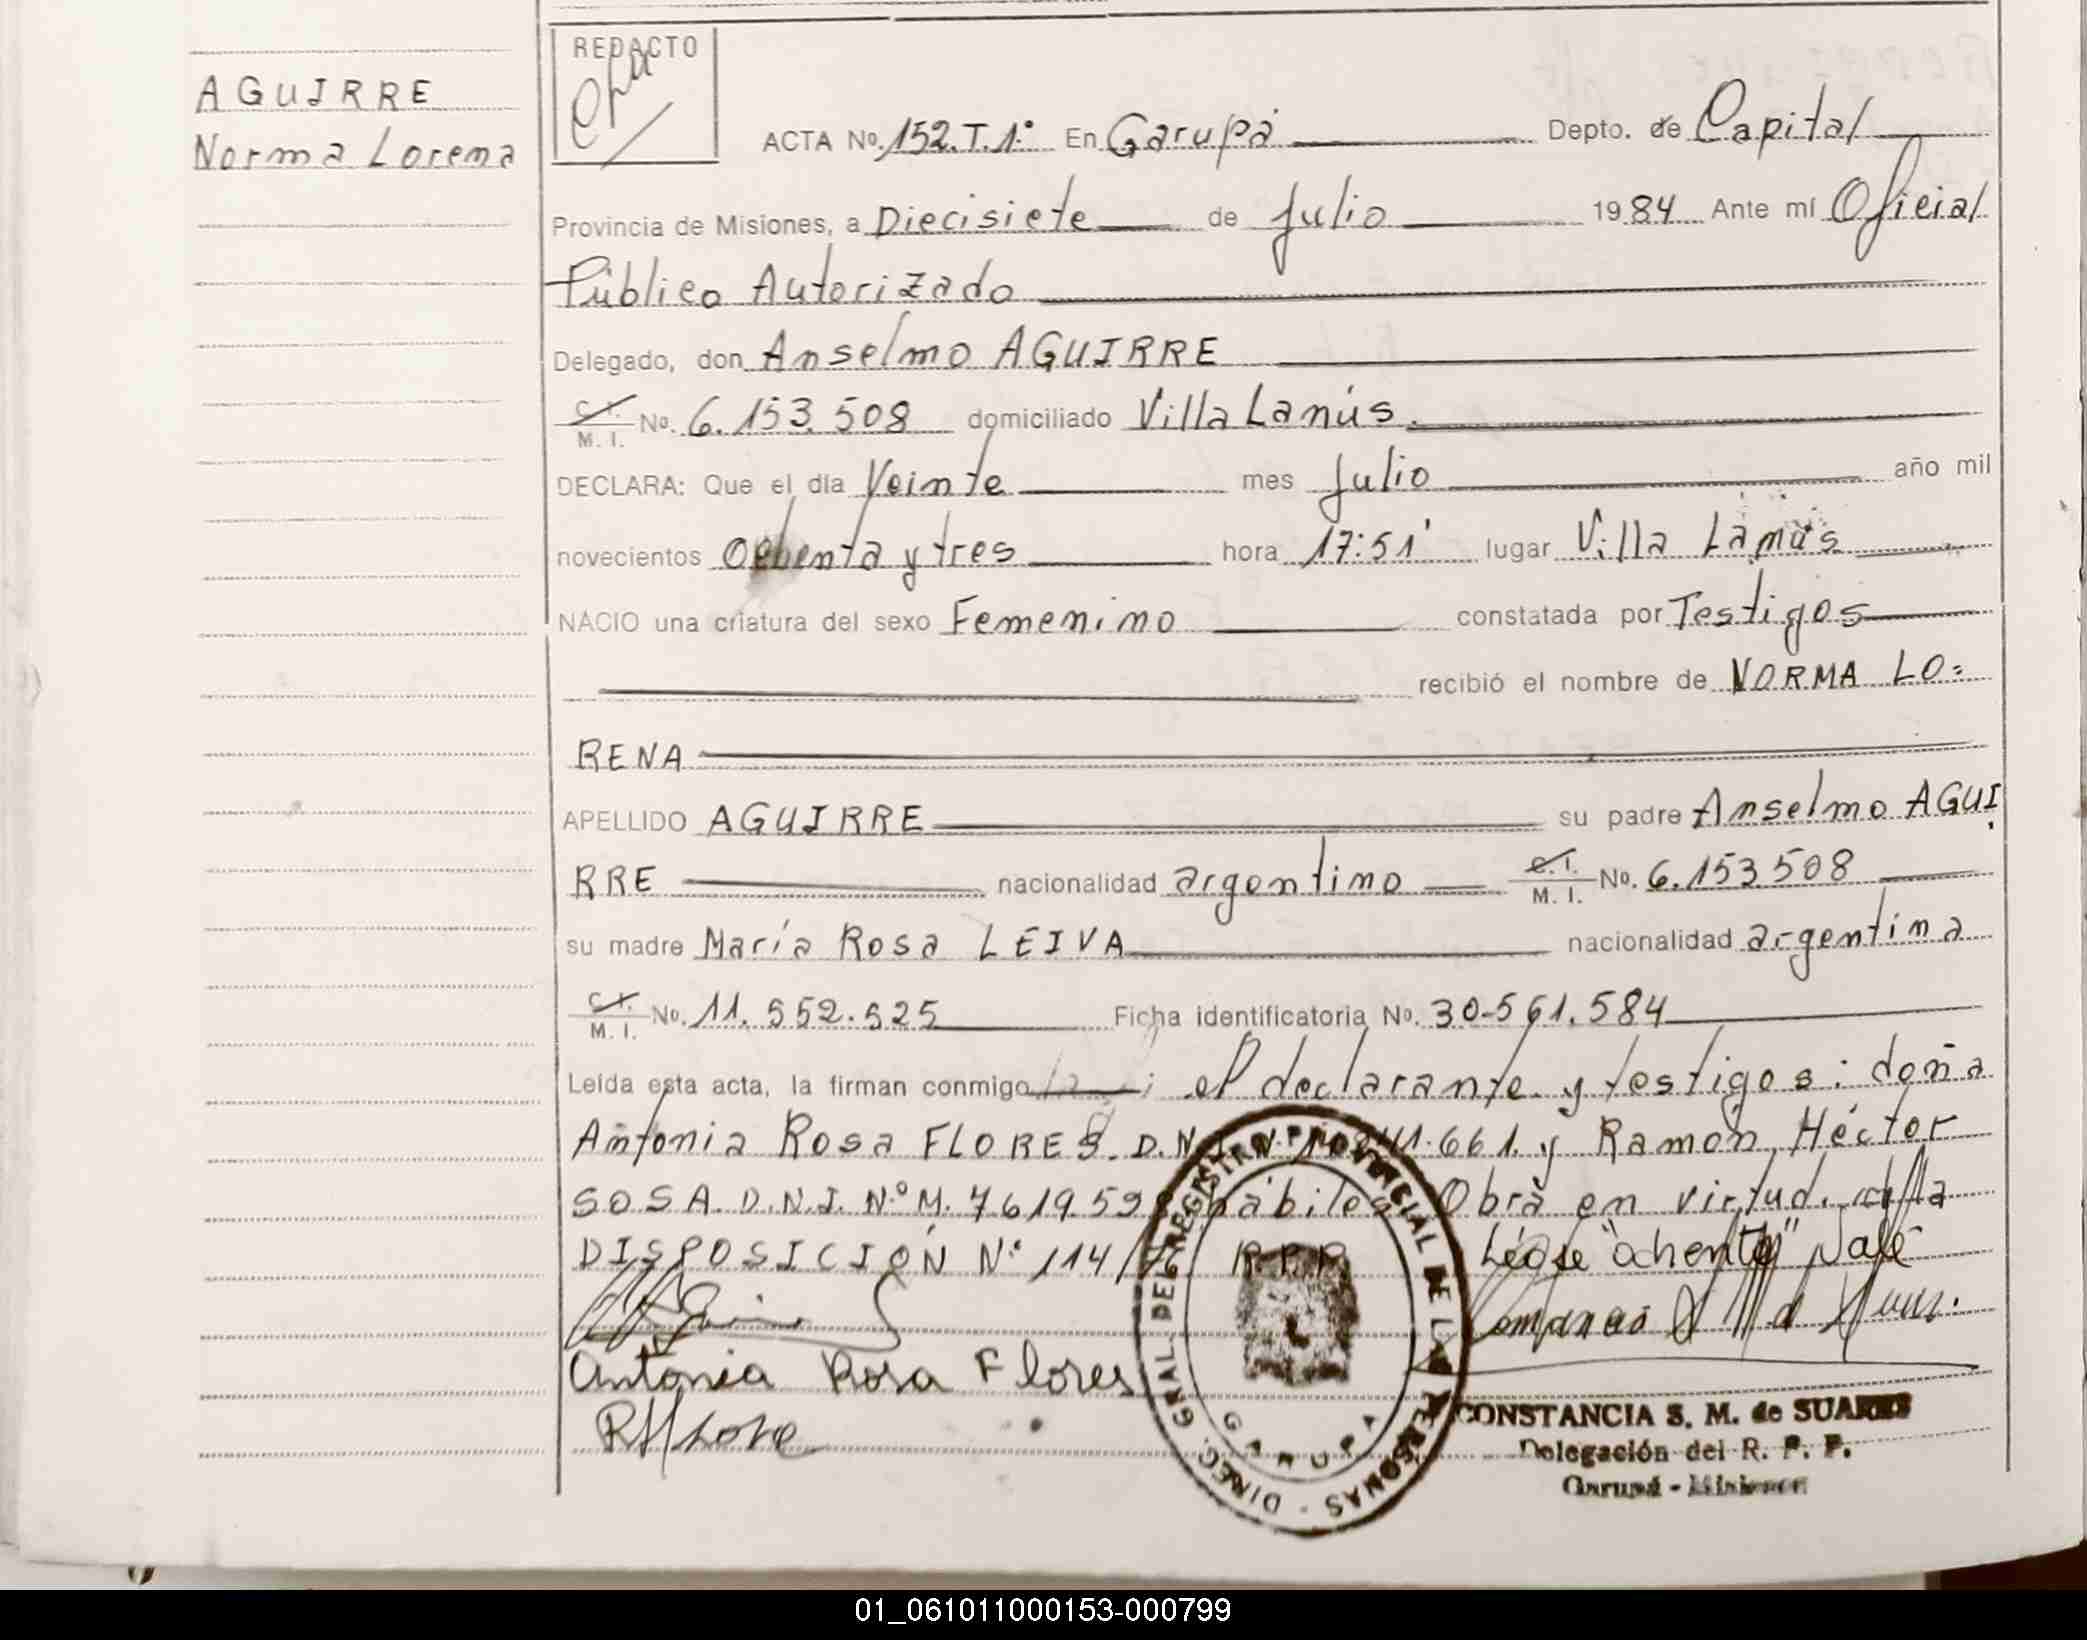 AGUIRRE
Norma Lorena
REDACTO
ACTA No. 152.T.1.° En Garupá Depto. de Capital
Provincia de Misiones, a Diecisiete de Julio 1984 Ante mí Oficial
Público Autorizado
Delegado, don Anselmo AGUIRRE
C. I. / M. I. No. 6.153.508 domiciliado Villa Lanús.
DECLARA: Que el día Veinte mes Julio año mil
novecientos Ochenta y tres hora 17:51' lugar Villa Lanús
NACIO una criatura del sexo Femenino constatada por Testigos
recibió el nombre de NORMA LO=
RENA
APELLIDO AGUIRRE su padre Anselmo AGUI
RRE nacionalidad argentino C. I. / M. I. No. 6.153.508
su madre María Rosa LEIVA nacionalidad argentina
C. I. / M. I. No. 11.552.525 Ficha identificatoria No. 30-561.584
Leída esta acta, la firman conmigo ; el declarante y testigos: doña
Antonia Rosa FLORES. D.N.I. N.° .661. y Ramón Héctor
SOSA. D.N.I. N.° M. 7.619.59 hábiles Obra en virtud. a la
DISPOSICIÓN N.° 114/76 R.P.P. Léase "ochenta" Vale
Antonia Rosa Flores
CONSTANCIA S. M. de SUARES
Delegación del R. P. P.
Garupá - Misiones
DIREC. GRAL. DEL REGISTRO PROVINCIAL DE LAS PERSONAS
GARUPA
01_061011000153-000799